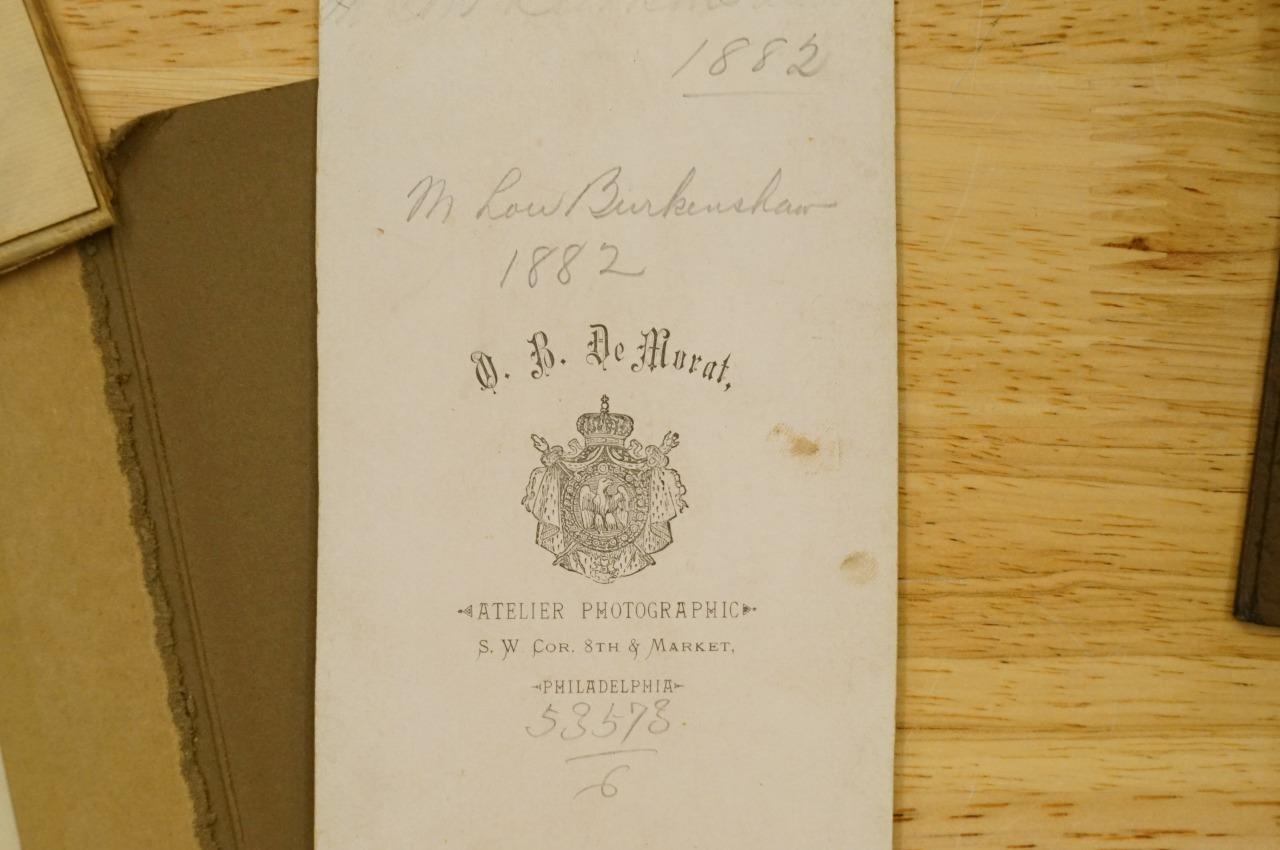 1882
M Lou Burkenshaw
1882
O. B. De Morat,
ATELIER PHOTOGRAPHIC
S. W. COR. 8TH & MARKET,
PHILADELPHIA
53573
6